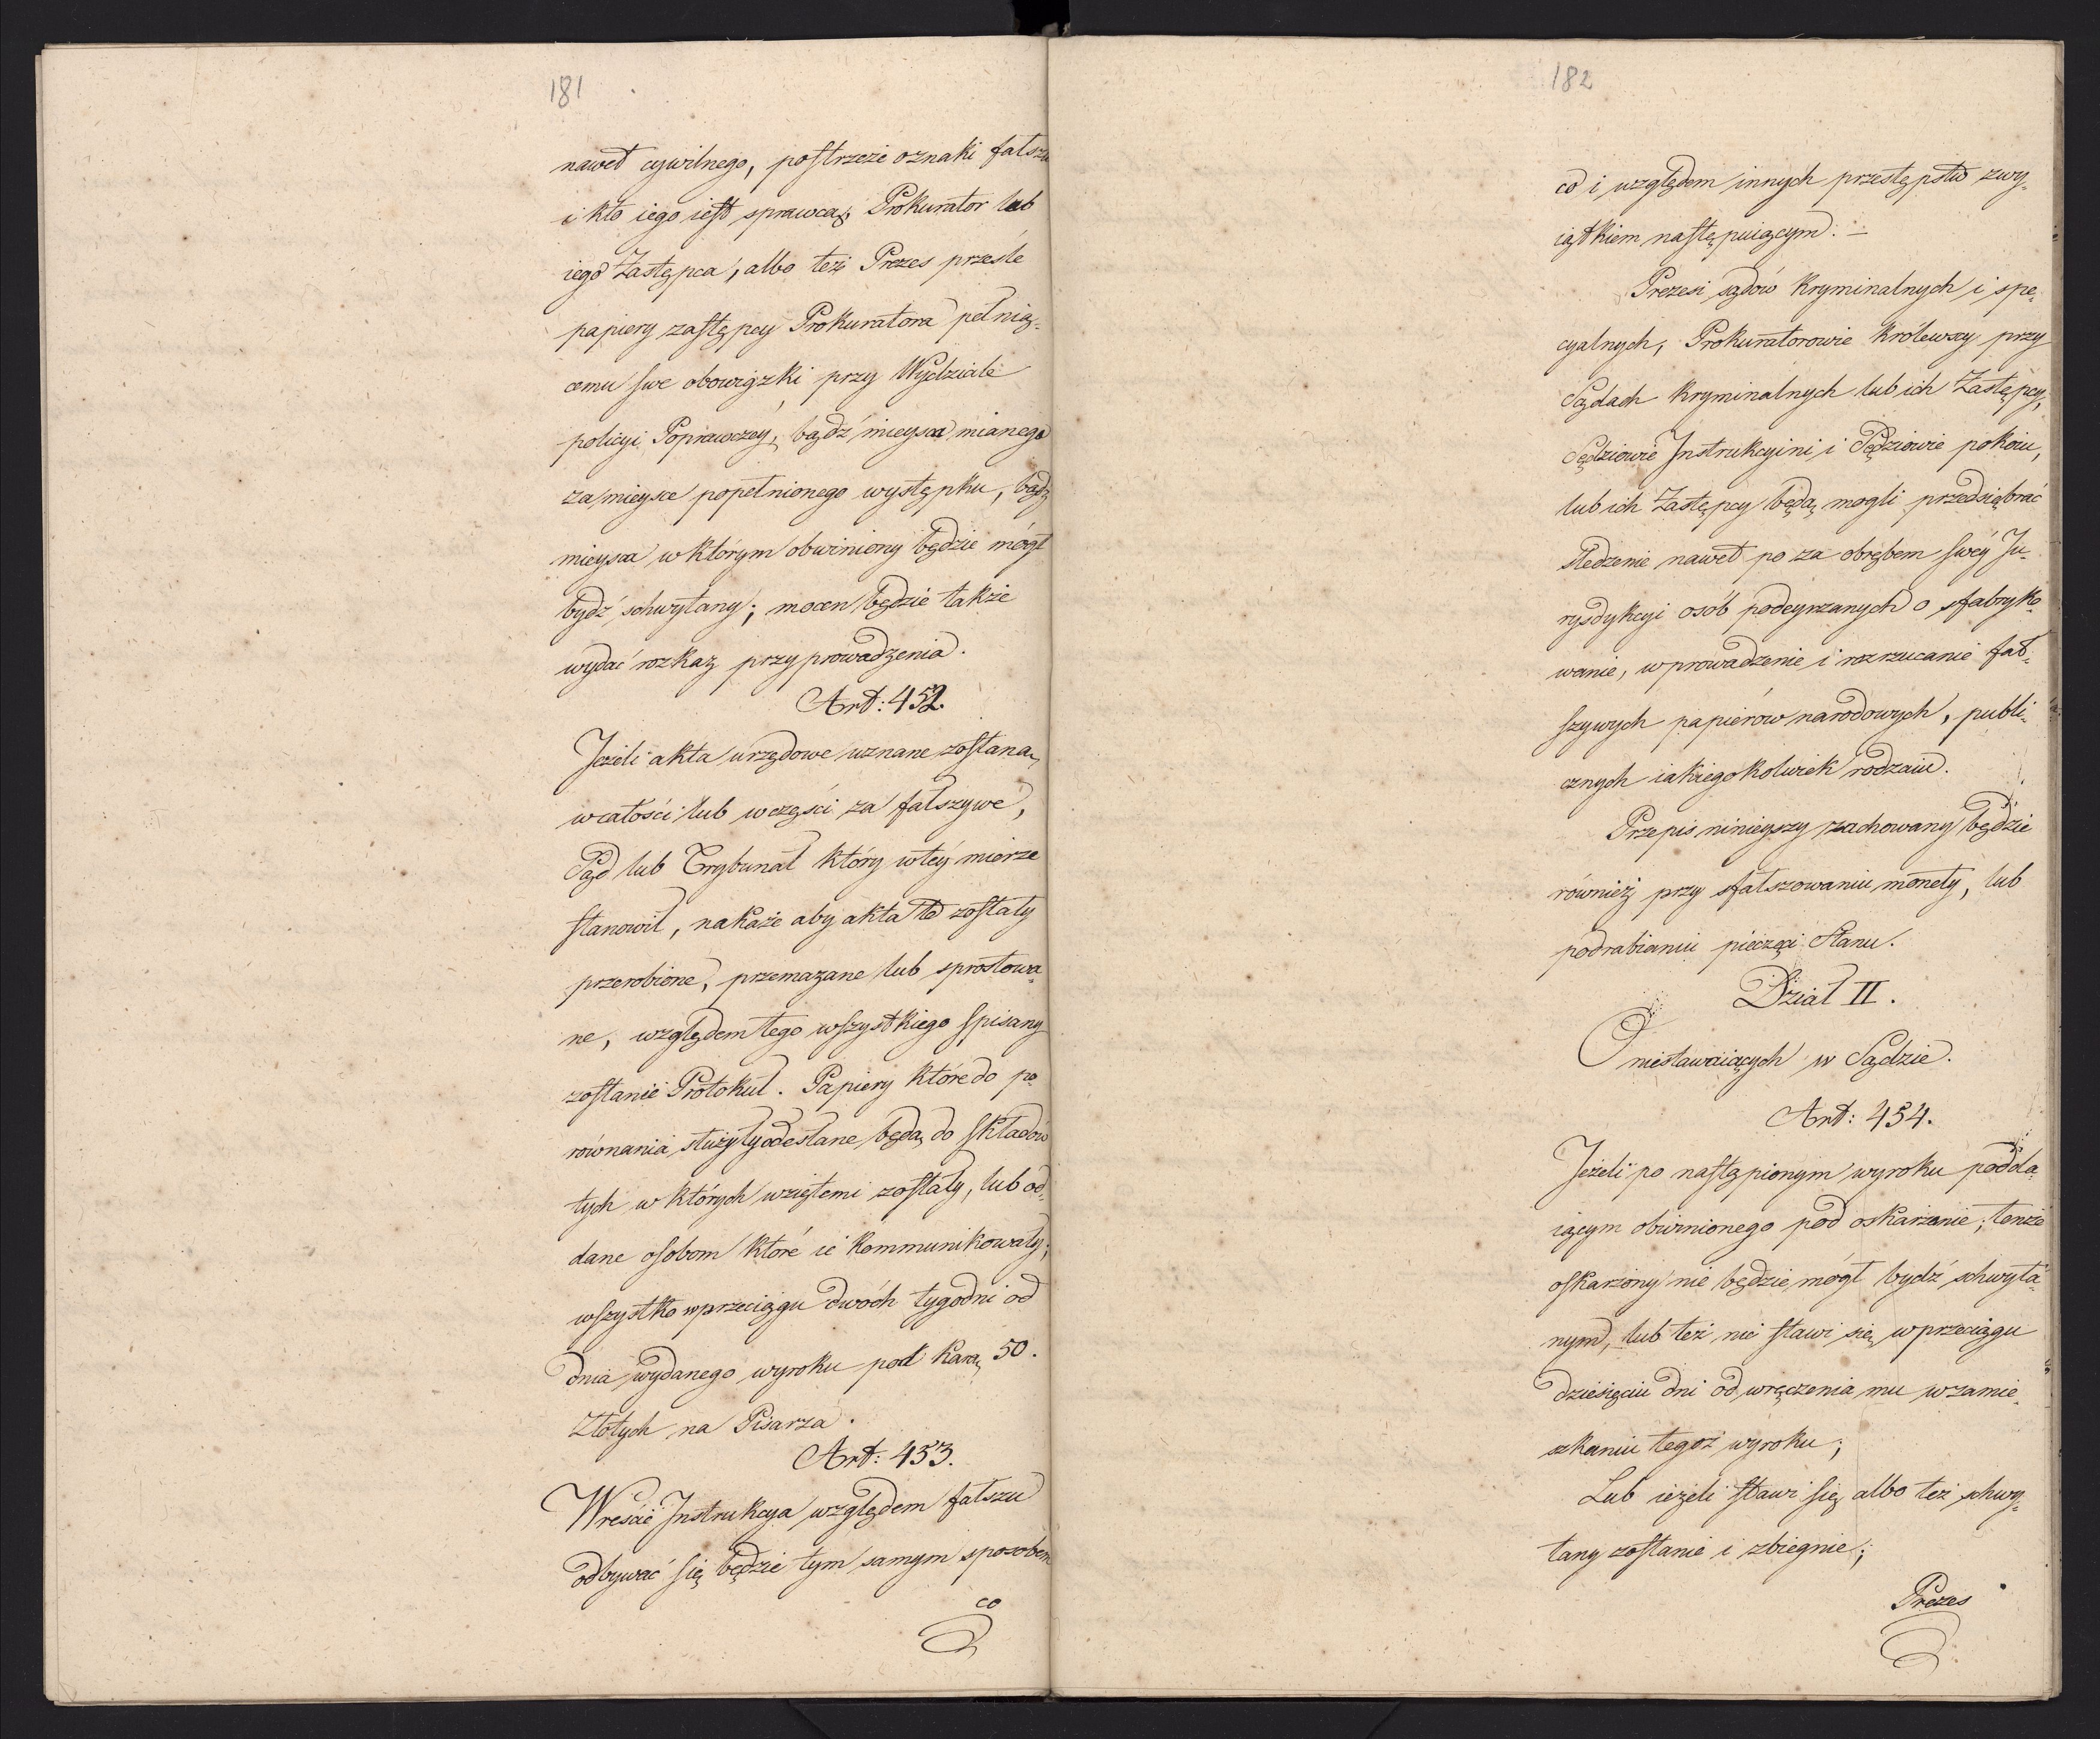 181
nawet cywilnego, postrzeże oznaki fałszu
i kto iego iest sprawcą; Prokurator lub
iego Zastępca, albo też Prezes prześle
papiery zastępcy Prokuratora pełnią-
cemu swe obowiązki przy Wydziale
policyi Poprawczéy, bądź mieysca mianego
za mieysce popełnionego występku, bądź
mieysca w którym obwiniony będzie mógł
bydź schwytany; mocen będzie także
wydać rozkaz przyprowadzenia.
Art: 452.
Jeżeli akta urzędowe uznane zostaną
w całości lub w części za fałszywe,
Sąd lub Trybunał który w téy mierze
stanowił, nakaże aby akta te zostały
przerobione, przemazane lub sprostowa-
ne, względem tego wszystkiego spisany
zostanie Protokuł. Papiery które do po-
równania służyły odesłane będą do składów
tych w których wziętemi zostały, lub od-
dane osobom które ie kommunikowały;
wszystko w przeciągu dwóch tygodni od
dnia wydanego wyroku pod karą 50.
Złotych na Pisarza.
Art: 453.
Wreście Instrukcya względem fałszu
odbywać się będzie tym samym sposobem
co
182
co i względem innych przestępstw z wy-
iątkiem następuiącym: -
Prezesi sądów Kryminalnych i spe-
cyalnych, Prokuratorowie Królewscy przy
Sądach Kryminalnych lub ich Zastępcy,
Sędziowie Instrukcyini i Sędziowie pokoiu,
lub ich Zastępcy będą mogli przedsiębrać
śledzenie nawet po za obrębem swéy Ju-
rysdykcyi osób podeyrzanych o sfabryko-
wanie, wprowadzenie i rozrzucanie fał-
szywych papierów narodowych, publi-
cznych iakiegokolwiek rodzaiu.
Przepis ninieyszy zachowany będzie
również przy sfałszowaniu monety, lub
podrabianiu pieczęci Stanu.
Dział II.
O niestawaiących w Sądzie.
Art: 454.
Jeżeli po nastąpionym wyroku podda-
iącym obwinionego pod oskarżenie; tenże
oskarżony nie będzie mógł bydź schwyta-
nym, lub też nie stawi się w przeciągu
dziesięciu dni od wręczenia mu w zamie-
szkaniu tegoż wyroku;
Lub ieżeli stawi się albo też schwy-
tany zostanie i zbiegnie;
Prezes